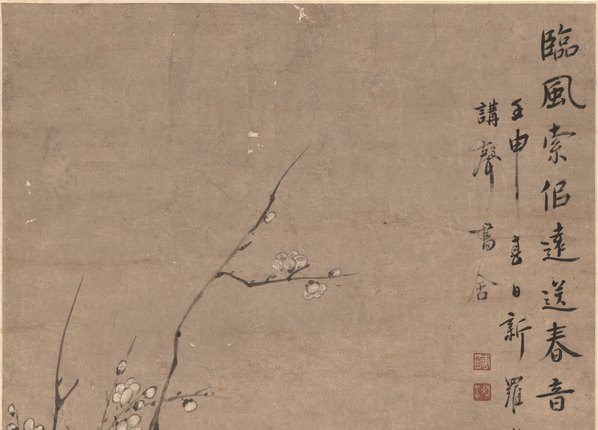 臨風索侶遠送春音
壬申春日新羅
講聲書舍